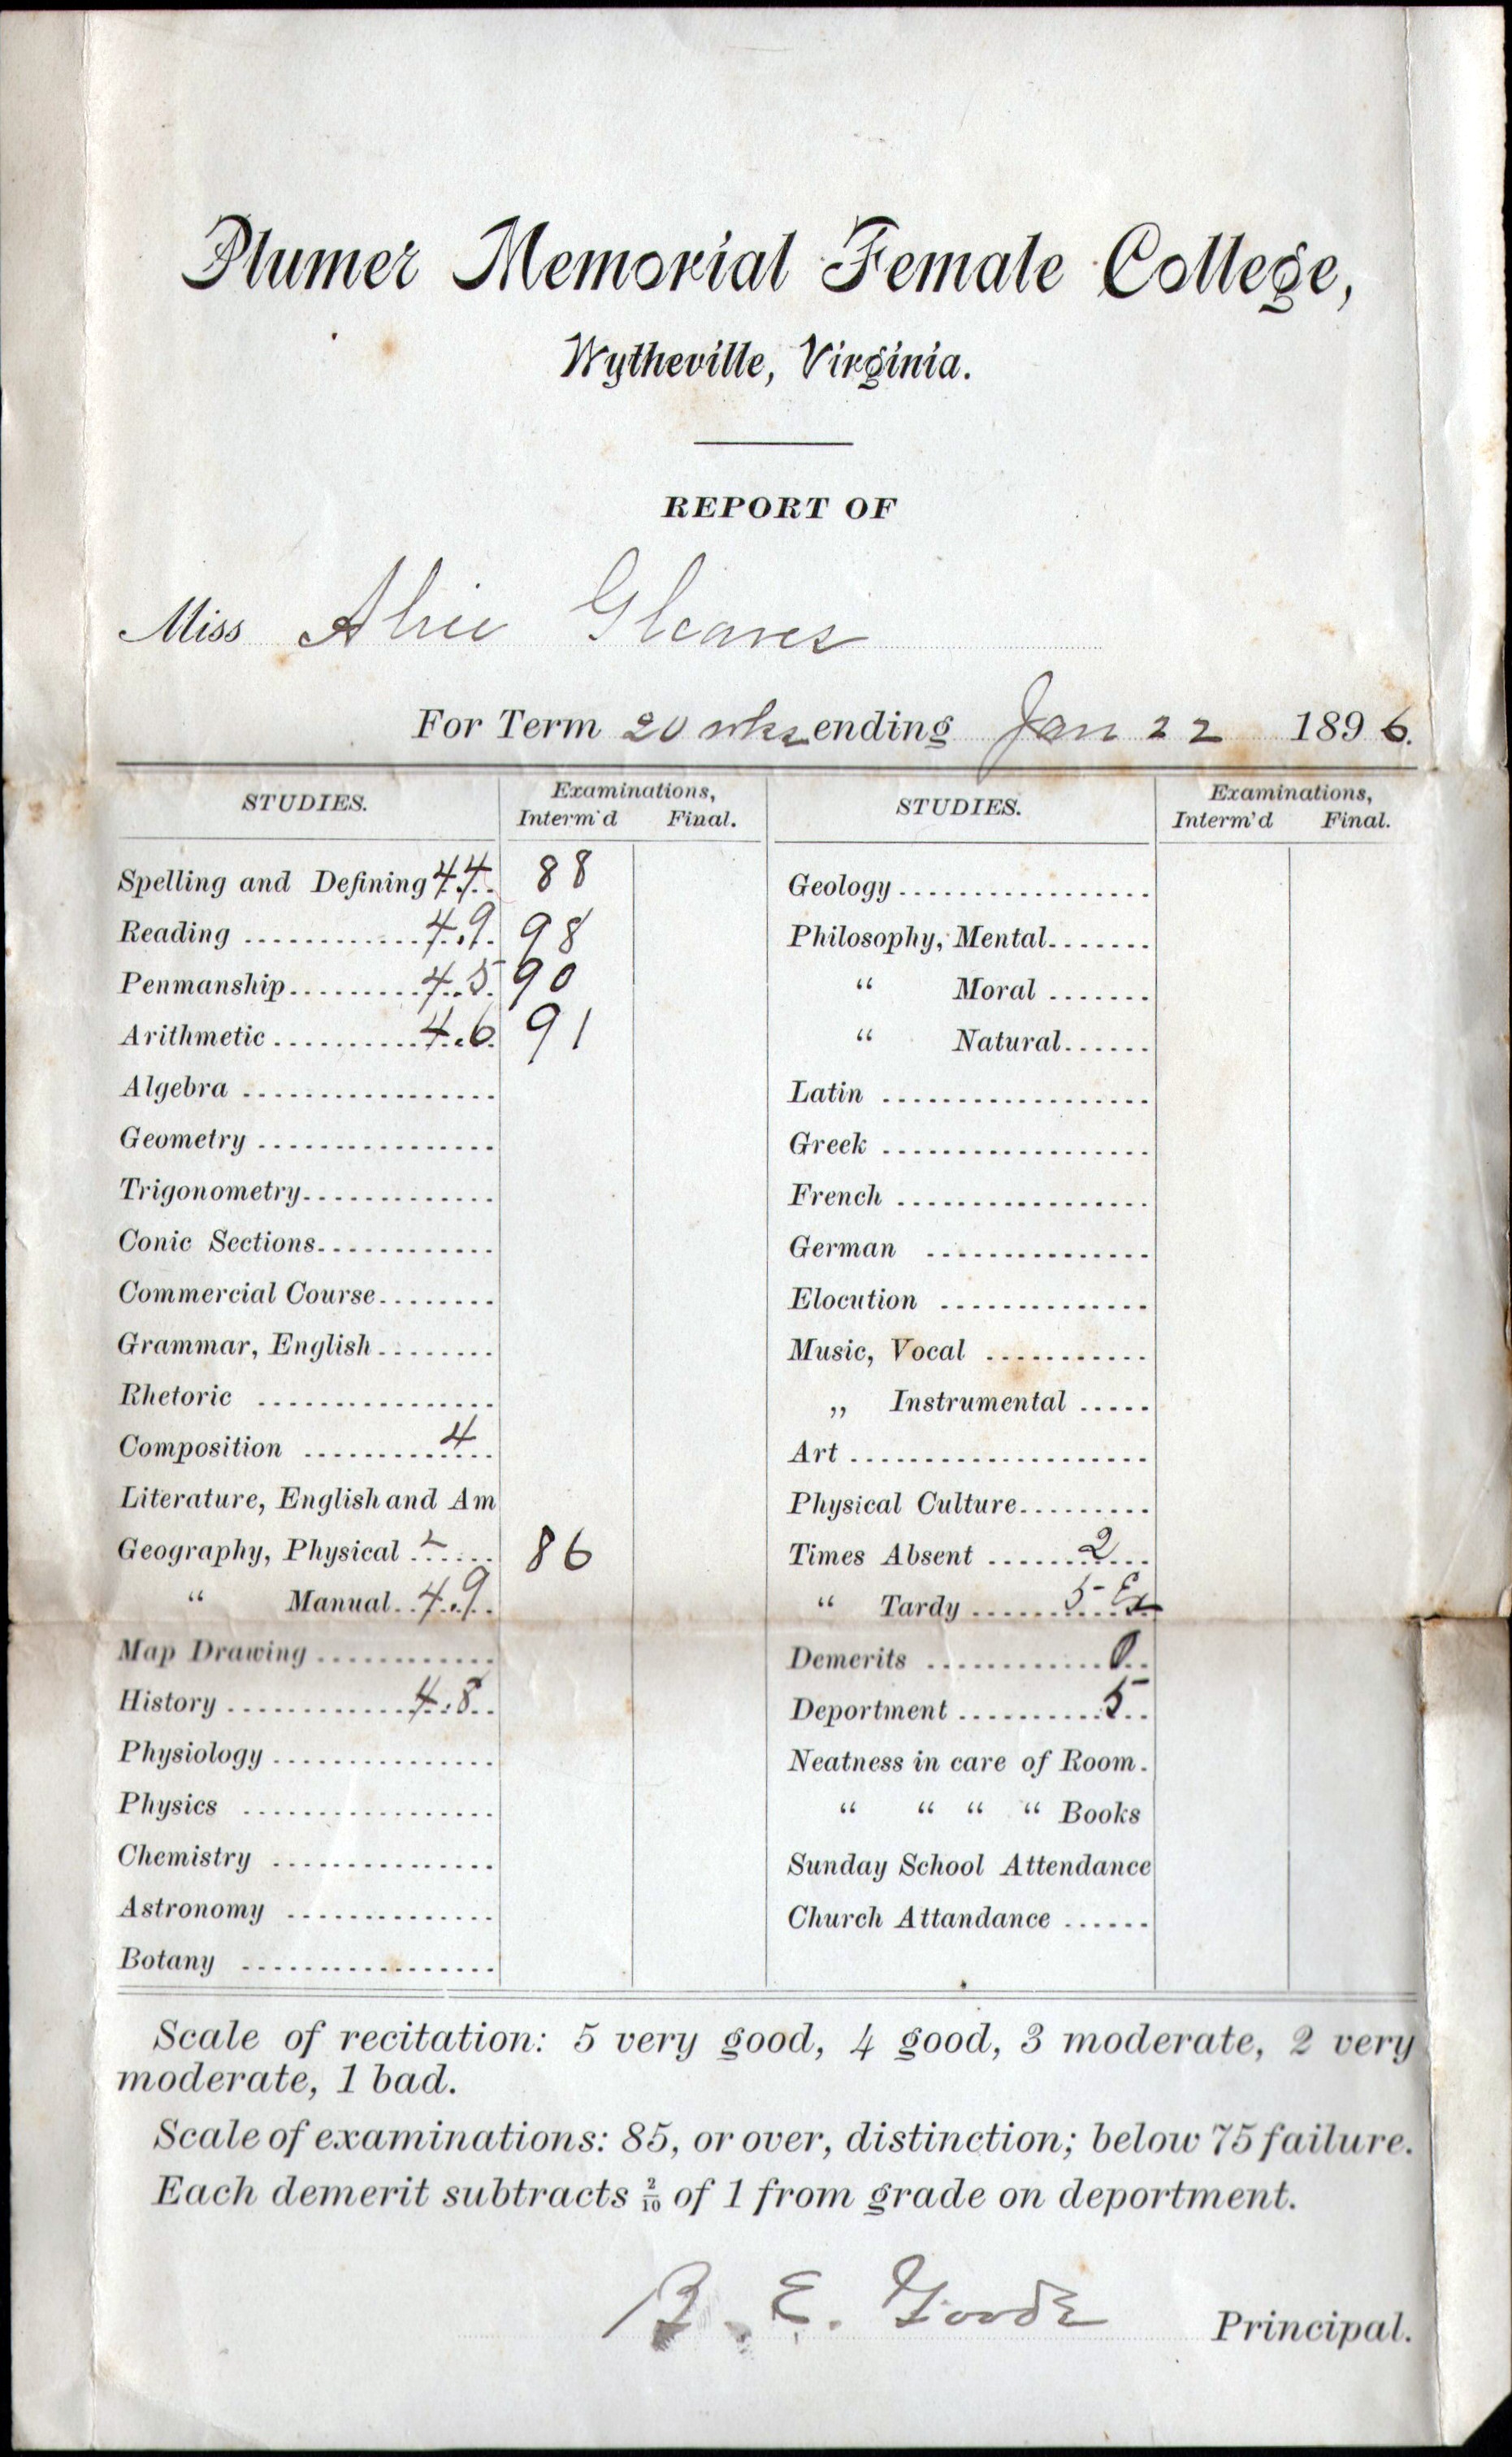 Plumer Memorial Female College,
Wytheville, Virginia.
REPORT OF
Miss Alice Gleaves
For Term 20 wks ending Jan 22 1896.
STUDIES. Examinations, Interm'd Final.
Spelling and Defining 4.4 88
Reading 4.9 98
Penmanship 4.5 90
Arithmetic 4.6 91
Algebra
Geometry
Trigonometry
Conic Sections
Commercial Course
Grammar, English
Rhetoric
Composition 4
Literature, English and Am
Geography, Physical 86
" Manual 4.9
Map Drawing
History 4.8
Physiology
Physics
Chemistry
Astronomy
Botany
STUDIES. Examinations, Interm'd Final.
Geology
Philosophy, Mental
" Moral
" Natural
Latin
Greek
French
German
Elocution
Music, Vocal
„ Instrumental
Art
Physical Culture
Times Absent 2
" Tardy 5 Ex
Demerits 0
Deportment 5
Neatness in care of Room.
" " " " Books
Sunday School Attendance
Church Attandance
Scale of recitation: 5 very good, 4 good, 3 moderate, 2 very
moderate, 1 bad.
Scale of examinations: 85, or over, distinction; below 75 failure.
Each demerit subtracts 2/10 of 1 from grade on deportment.
B. E. Goode Principal.